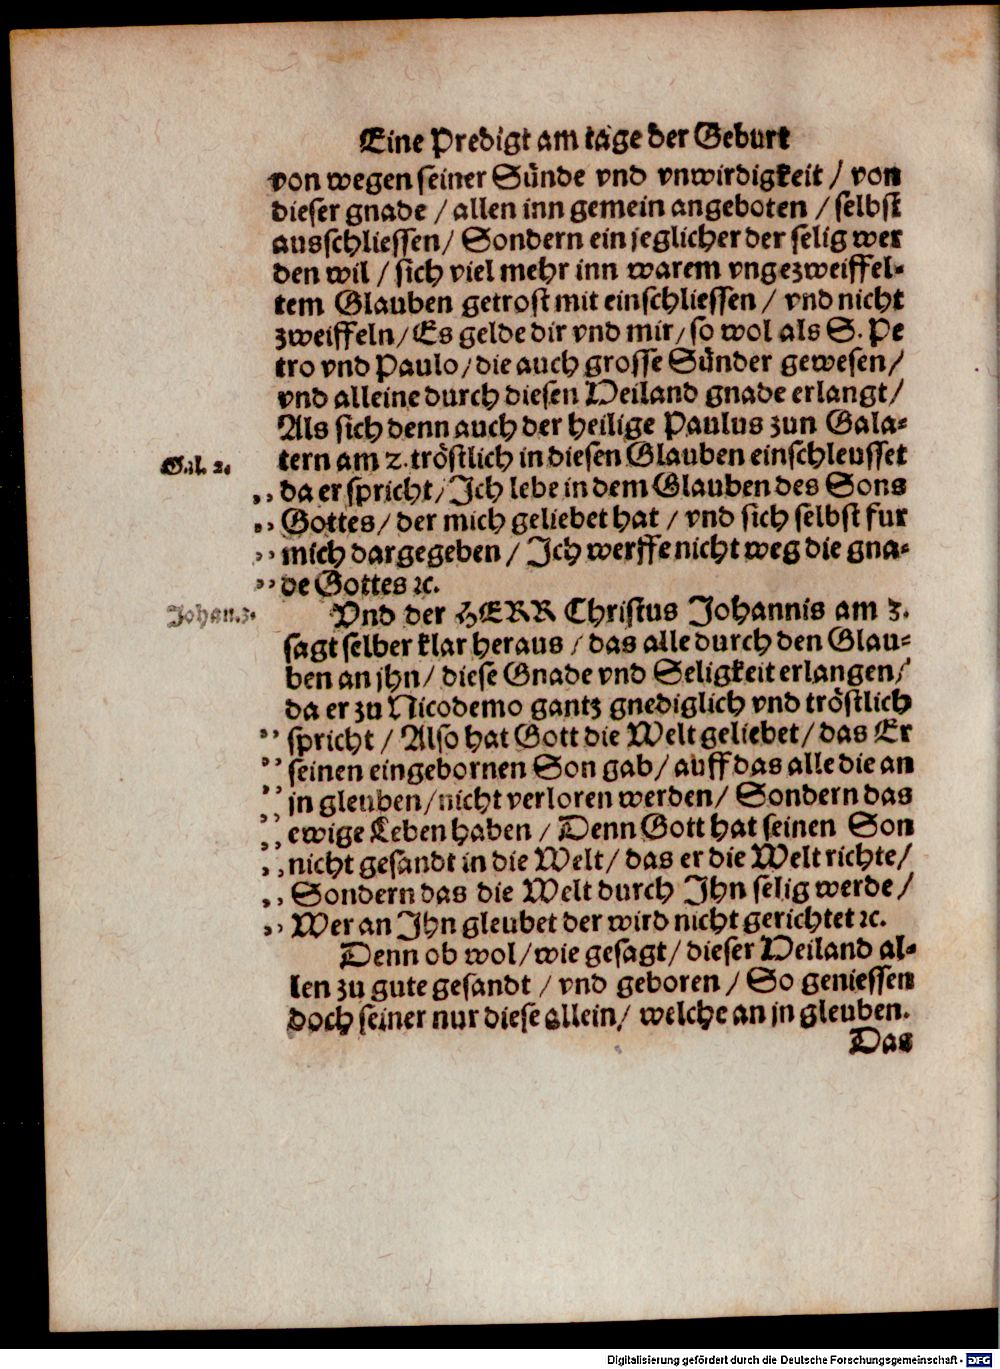 Eine Predigt am tage der Geburt
von wegen seiner Sünde vnd vnwirdigkeit / von
dieser gnade / allen inn gemein angeboten / selbst
ausschliessen / Sondern ein jeglicher der selig wer
den wil / sich viel mehr inn warem vngezweiffel-
tem Glauben getrost mit einschliessen / vnd nicht
zweiffeln / Es gelde dir vnd mir / so wol als S. Pe
tro vnd Paulo / die auch grosse Sünder gewesen /
vnd alleine durch diesen Heiland gnade erlangt /
Als sich denn auch der heilige Paulus zun Gala-
Gal. 2. tern am 2. tröstlich in diesen Glauben einschleusset
,, da er spricht / Ich lebe in dem Glauben des Sons
,, Gottes / der mich geliebet hat / vnd sich selbst fur
,, mich dargegeben / Ich werffe nicht weg die gna-
,, de Gottes ꝛc.
Johan. 3. Vnd der HERR Christus Johannis am 3.
sagt selber klar heraus / das alle durch den Glau-
ben an jhn / diese Gnade vnd Seligkeit erlangen /
da er zu Nicodemo gantz gnediglich vnd tröstlich
,, spricht / Also hat Gott die Welt geliebet / das Er
,, seinen eingebornen Son gab / auff das alle die an
,, jn gleuben / nicht verloren werden / Sondern das
,, ewige Leben haben / Denn Gott hat seinen Son
,, nicht gesandt in die Welt / das er die Welt richte /
,, Sondern das die Welt durch Ihn selig werde /
,, Wer an Ihn gleubet der wird nicht gerichtet ꝛc.
Denn ob wol / wie gesagt / dieser Heiland al-
len zu gute gesandt / vnd geboren / So geniessen
doch seiner nur diese allein / welche an jn gleuben.
Das
Digitalisierung gefördert durch die Deutsche Forschungsgemeinschaft - DFG